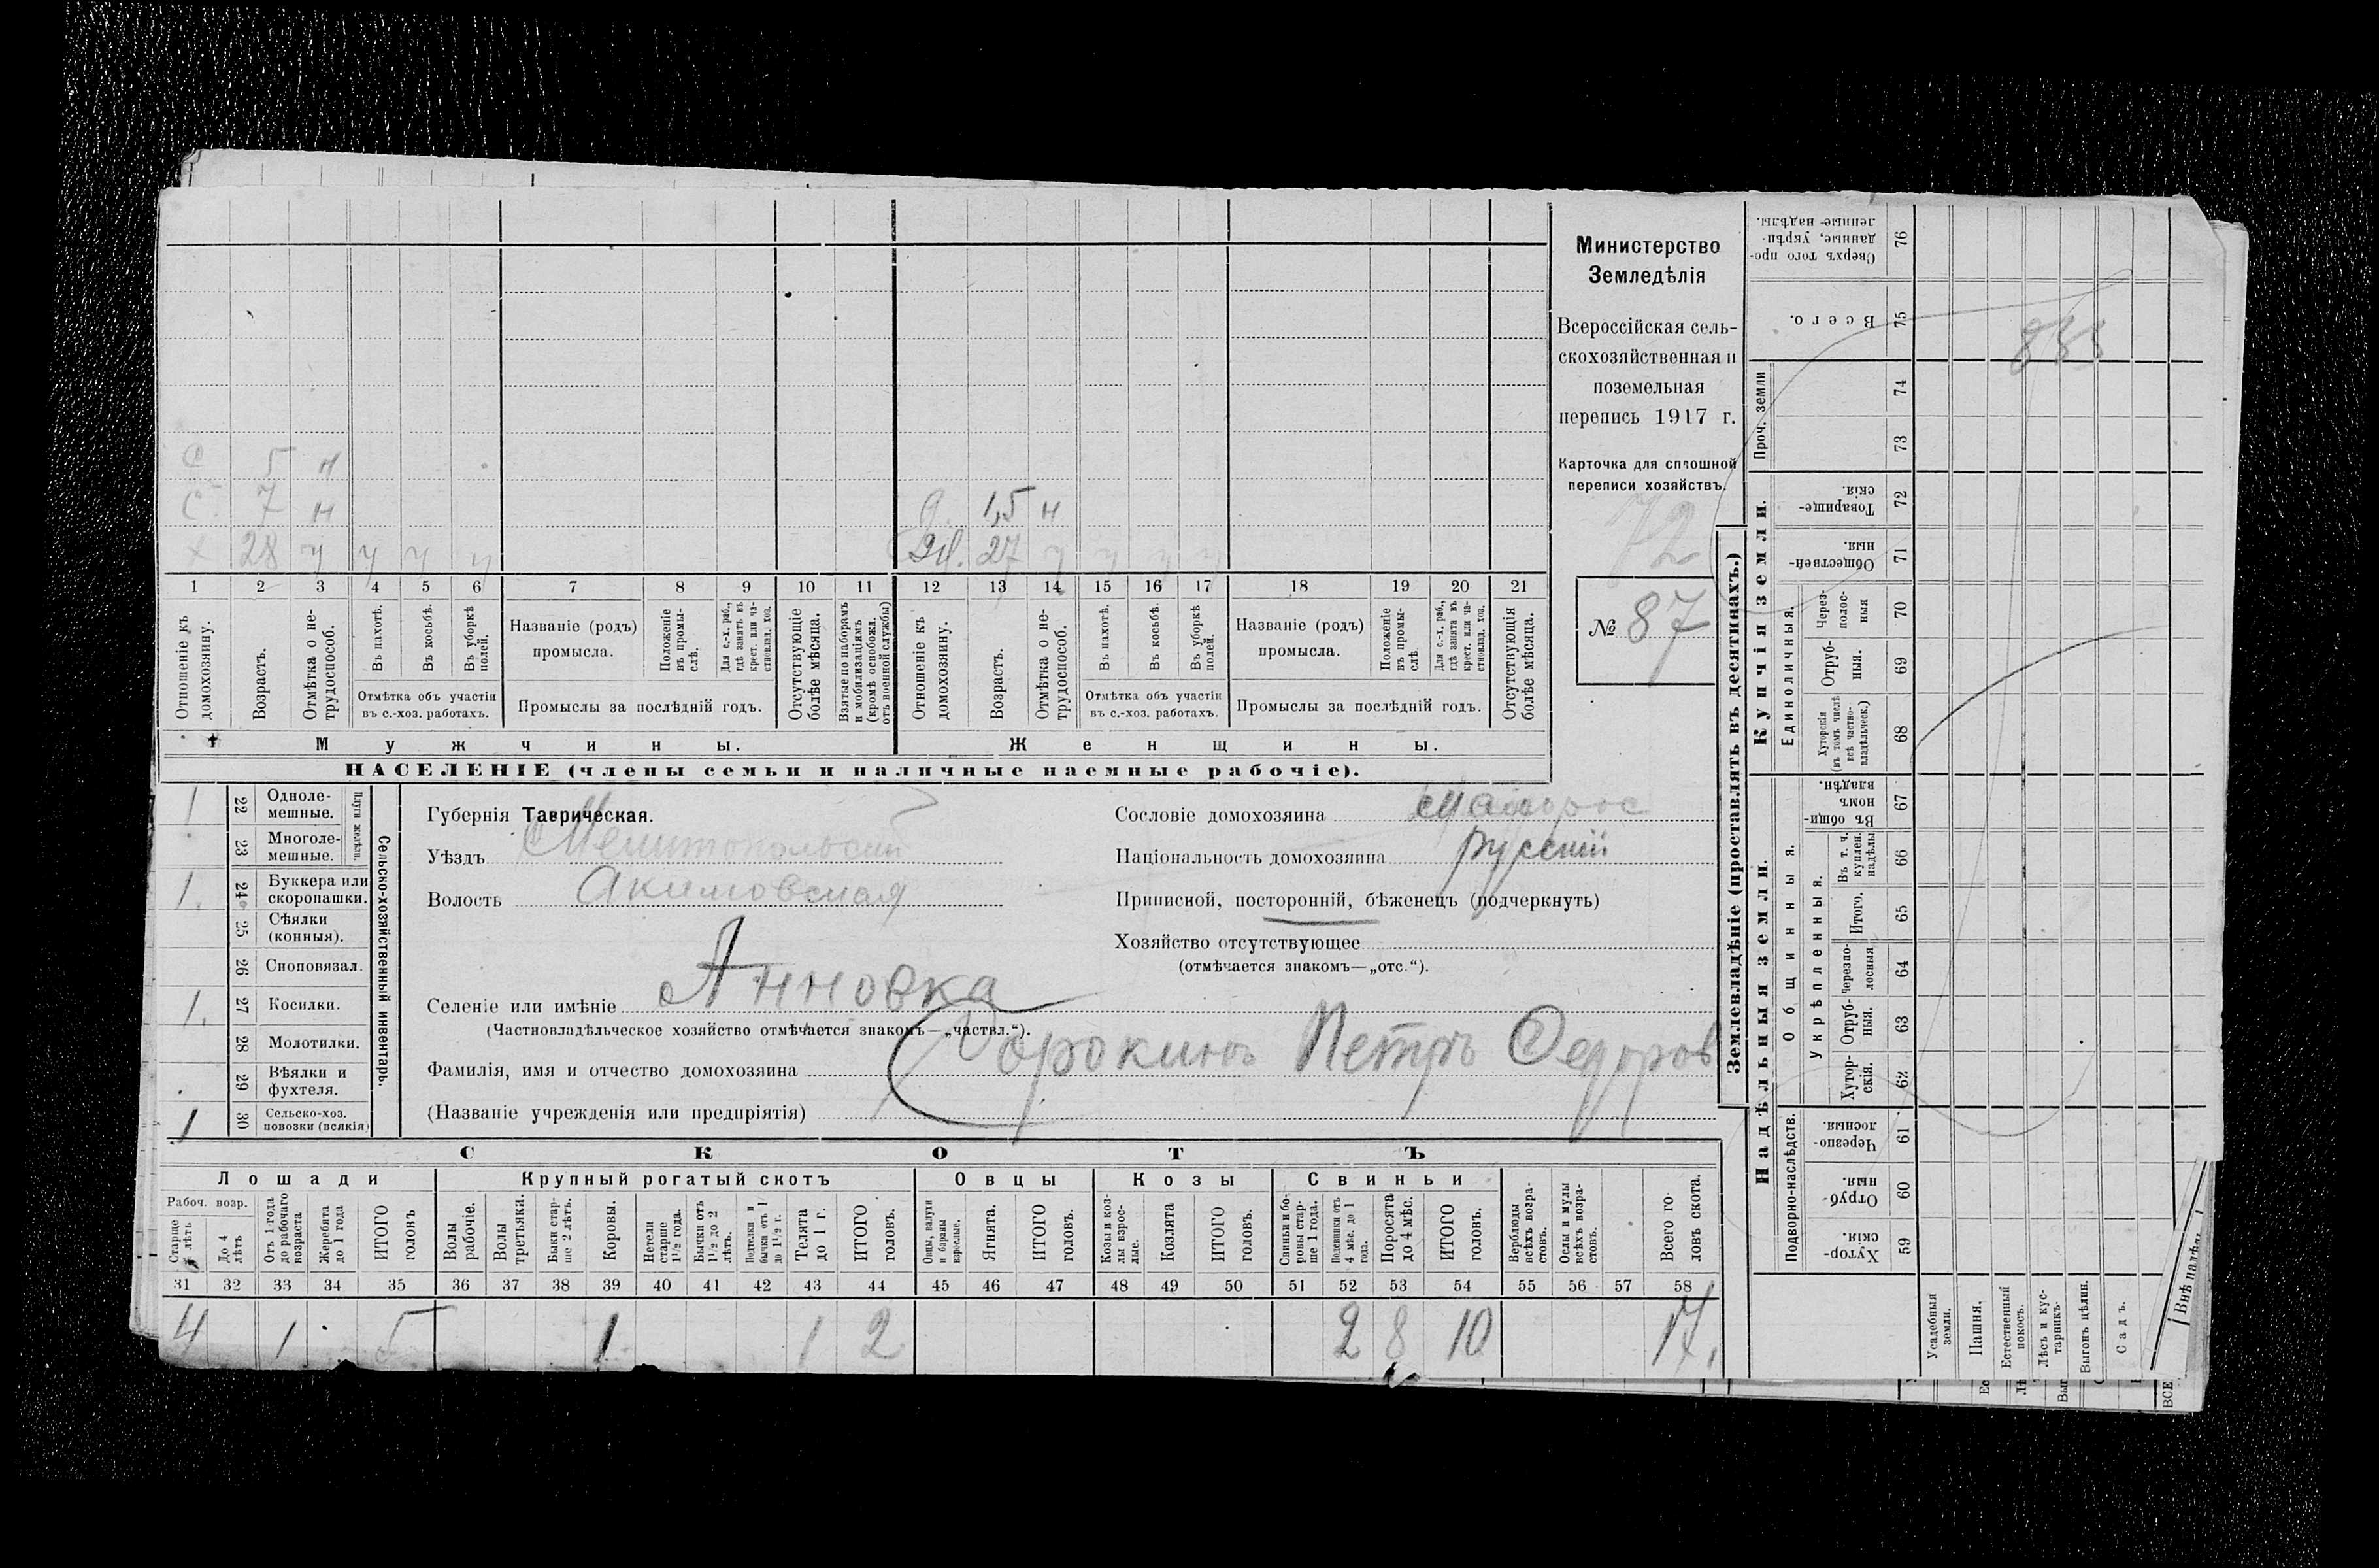 С 5 н
С 7 н
д. 1,5 н
х 28 ч ч ч ч
ж. 27 ч ч ч ч
1 2 3 4 5 6 7 8 9 10 11 12 13 14 15 16 17 18 19 20 21
Отношеніе къ домохозяину.
Возрастъ.
Отмѣтка о нетрудоспособ.
Въ пахотѣ.
Въ косьбѣ.
Въ уборкѣ полей.
Отмѣтка объ участіи
въ с.-хоз. работахъ.
Названіе (родъ)
промысла.
Положеніе въ промыслѣ.
Для с.-х. раб., гдѣ занятъ въ крест. или частновлад. хоз.
Промыслы за послѣдній годъ.
Отсутствующіе болѣе мѣсяца.
Взятые по наборамъ и мобилизаціямъ (кромѣ освобожд. отъ военной службы)
Отношеніе къ домохозяину.
Возрастъ.
Отмѣтка о нетрудоспособ.
Въ пахотѣ.
Въ косьбѣ.
Въ уборкѣ полей.
Отмѣтка объ участіи
въ с.-хоз. работахъ.
Названіе (родъ)
промысла.
Положеніе въ промыслѣ
Для с.-х. раб., гдѣ занята въ крест. или частновлад. хоз.
Промыслы за послѣдній годъ.
Отсутствующія болѣе мѣсяца.
Мужчины.
Женщины.
НАСЕЛЕНІЕ (члены семьи и наличные наемные рабочіе).
Министерство
Земледѣлія
Всероссійская сель-
скохозяйственная и
поземельная
перепись 1917 г.
Карточка для сплошной
переписи хозяйствъ.
72
№ 87
Плуги желѣзн.
1 22 Одноле-
мешные.
23 Многоле-
мешные.
1. 24 Буккера или
скоропашки.
25 Сѣялки
(конныя).
26 Сноповязал.
1. 27 Косилки.
28 Молотилки.
29 Вѣялки и
фухтеля.
1 30 Сельско-хоз.
повозки (всякія)
Сельско-хозяйственный инвентарь.
Губернія Таврическая.
Уѣздъ Мелитопольскій
Волость Акимовская
Селеніе или имѣніе Анновка
(Частновладѣльческое хозяйство отмѣчается знакомъ—„частвл.“).
Фамилія, имя и отчество домохозяина Сорокинъ Петръ Федоров
(Названіе учрежденія или предпріятія)
Сословіе домохозяина
Національность домохозяина русскій
Приписной, посторонній, бѣженецъ (подчеркнуть)
Хозяйство отсутствующее
(отмѣчается знакомъ—„отс.“).
СКОТЪ
Лошади
Крупный рогатый скотъ
Овцы
Козы
Свиньи
Рабоч. возр.
Старше 4 лѣтъ
До 4 лѣтъ
Отъ 1 года до рабочаго возраста
Жеребята до 1 года
ИТОГО головъ
Волы рабочіе.
Волы третьяки.
Быки старше 2 лѣтъ.
Коровы.
Нетели старше 1½ года.
Бычки отъ 1½ до 2 лѣтъ.
Подтелки и бычки отъ 1 до 1½ г.
Телята до 1 г.
ИТОГО головъ.
Овцы, валухи и бараны взрослые.
Ягнята.
ИТОГО головъ.
Козы и козлы взрослые.
Козлята
ИТОГО головъ.
Свиньи и боровы старше 1 года.
Подсвинки отъ 4 мѣс. до 1 года.
Поросята до 4 мѣс.
ИТОГО головъ.
Верблюды всѣхъ возрастовъ.
Ослы и мулы всѣхъ возрастовъ.
Всего головъ скота.
31 32 33 34 35 36 37 38 39 40 41 42 43 44 45 46 47 48 49 50 51 52 53 54 55 56 57 58
4 1 5 1 1 2 2 8 10 17.
Землевладѣніе (проставлять въ десятинахъ.)
Купчія земли.
Надѣльныя земли.
Сверхъ того проданные, укрѣпленные надѣлы. 76
Всего. 75
Проч. земли 74
73
Товарищескія. 72
Общественныя. 71
Единоличныя.
Черезполосныя 70
Отрубныя. 69
Хуторскія (въ томъ числѣ всѣ частновладѣльческ.) 68
Общинныя.
Въ общинномъ владѣн. 67
Укрѣпленныя.
Въ т. ч. куплен. надѣлы 66
Итого. 65
Черезполосныя 64
Отрубныя. 63
Хуторскія. 62
Подворно-наслѣдств.
Черезполосныя. 61
Отрубныя. 60
Хуторскія. 59
Усадебныя земли.
Пашня.
Естественный покосъ.
Лѣсъ и кустарникъ.
Выгонъ цѣлин.
Садъ.
Внѣ надѣл.
ВСЕ